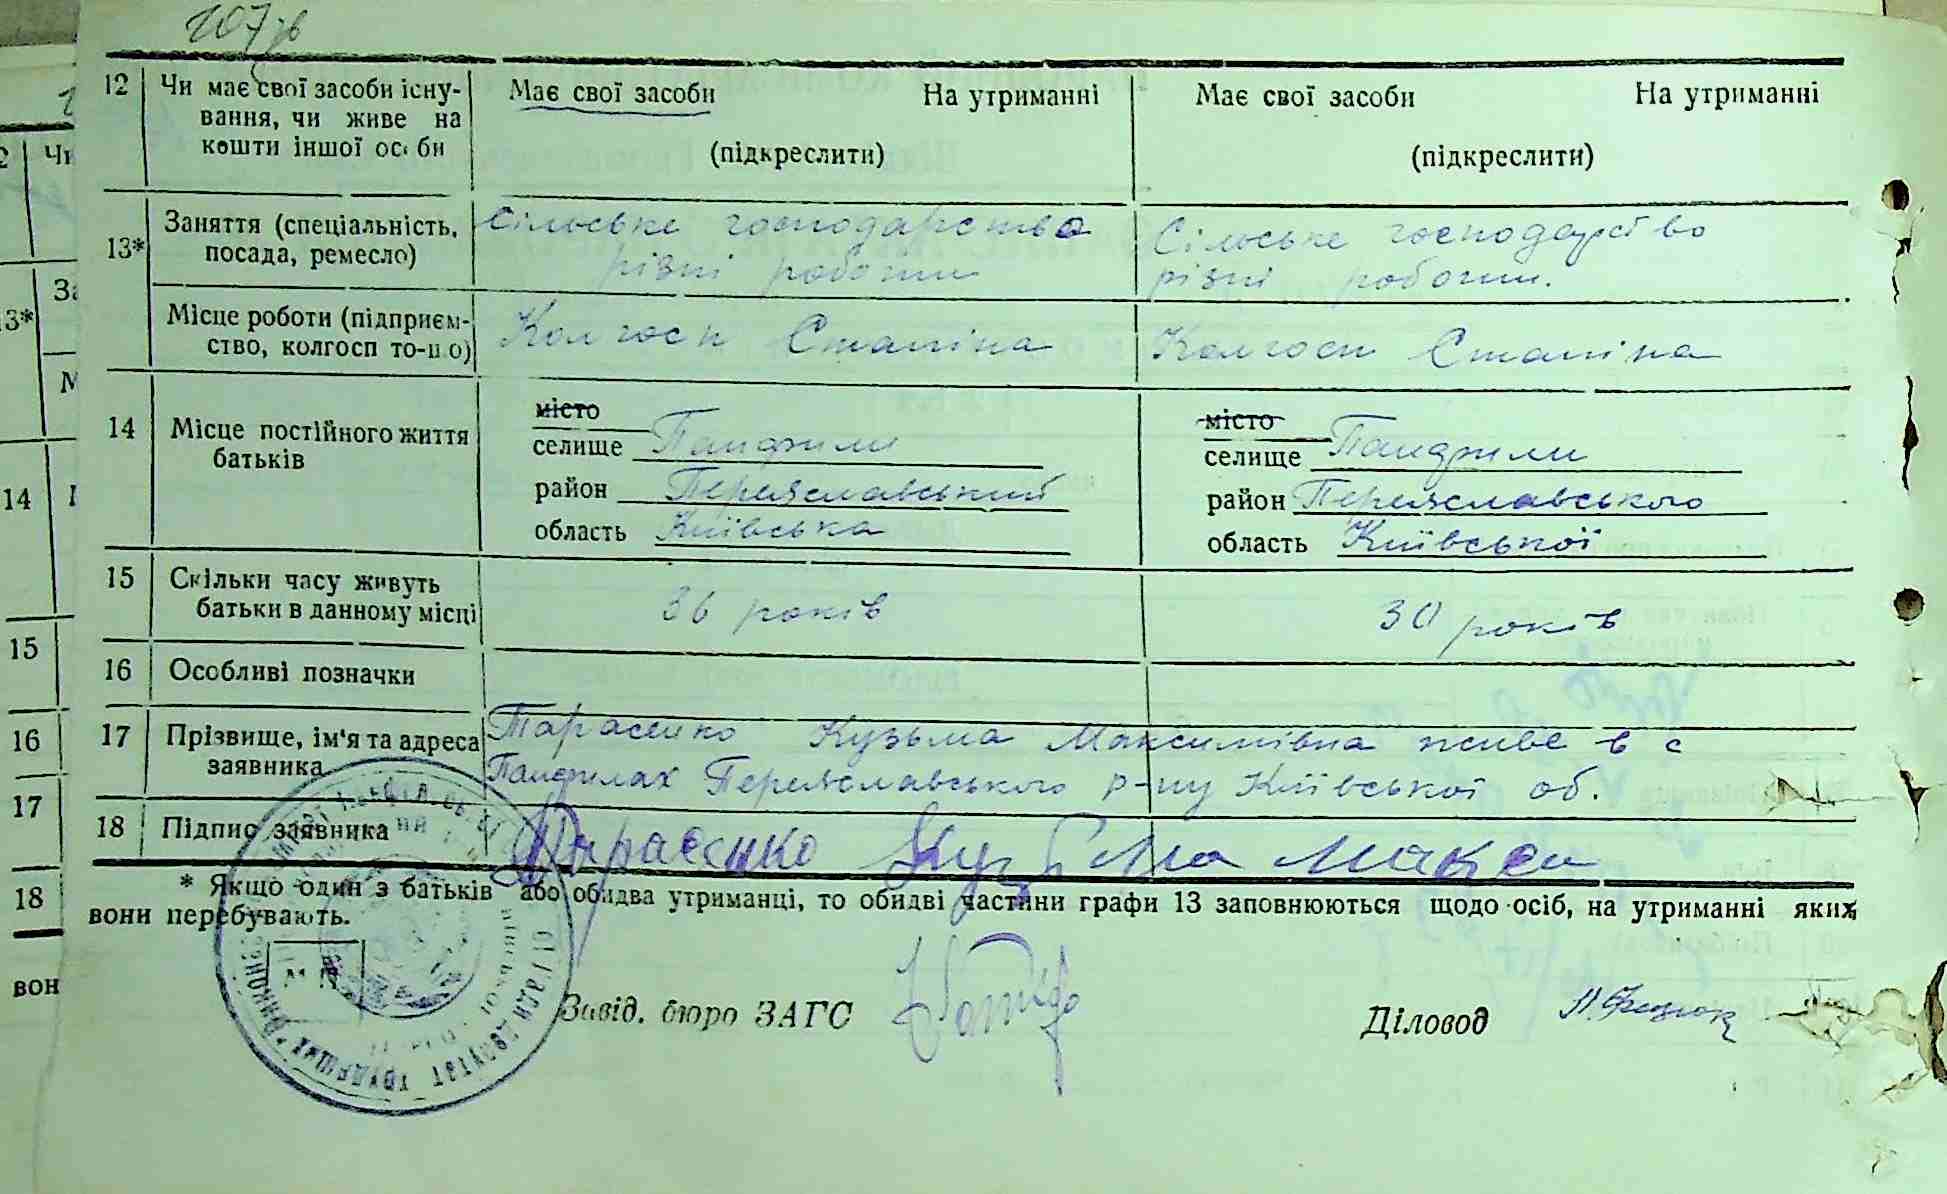 107 зв
12 Чи має свої засоби існу- Має свої засоби На утриманні Має свої засоби На утриманні
вання, чи живе на
кошти іншої особи (підкреслити) (підкреслити)
13* Заняття (спеціальність, Сільське господарство Сільське господарство
посада, ремесло) різні роботи різні роботи.
Місце роботи (підприєм- Колгосп Сталіна Колгосп Сталіна
ство, колгосп то-що)
14 Місце постійного життя місто місто
батьків селище Панфили селище Панфили
район Переяславський район Переяславського
область Київська область Київської
15 Скільки часу живуть 36 років 30 років
батьки в данному місці
16 Особливі позначки
17 Прізвище, ім'я та адреса Тарасенко Кузьма Максимівна живе в с
заявника Панфилах Переяславського р-ну Київської об.
18 Підпис заявника Тарасенко Кузьма Макси
* Якщо один з батьків або обидва утриманці, то обидві частини графи 13 заповнюються щодо осіб, на утриманні яких
вони перебувають.
Завід. бюро ЗАГС Діловод
2 Чи
13* За
М
14
15
16
17
18
вон